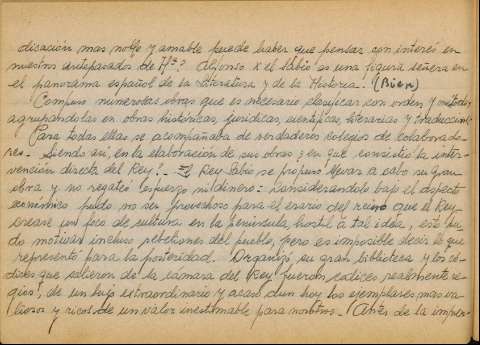 dicación mas noble y amable puede haber que pensar con interés en
nuestros antepasados de Hª? Alfonso X el Sabio es una figura señera en
el panorama español de la Literatura y de la Historia.- (Bien)
Compuso numerosas obras que es necesario clasificar con orden y metodo,
agrupandolas en obras históricas, juridicas, cientificas, literarias y traducciones
Para todas ellas se acompañaba de verdaderos colegios de colaborado-
res.- Siendo asi, en la elaboración de sus obras ¿en que consistia la inter-
vención directa del Rey?.- El Rey Sabio se propuso llevar a cabo su gran
obra y no regateó esfuerzo ni dinero:- Considerandolo bajo el aspecto
económico pudo no ser provechoso para el erario del reino que el Rey
crease un foco de cultura en la peninsula, hostil a tal idea, esto pu-
do motivar incluso rebeliones del pueblo, pero es imposible decir lo que
representó para la posteridad. Organizó su gran biblioteca y los có-
dices que salieron de la cámara del Rey fueron codices, realmente re-
gios, de un lujo extraordinario y acaso aun hoy los ejemplares mas va-
liosos y ricos de un valor inestimable para nosotros.- Antes de la impren-